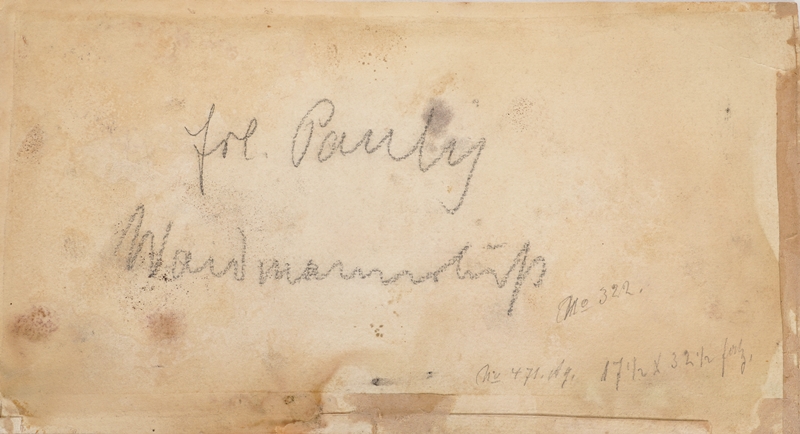 frl. Pauly
Waidmannslust
No 322.
No 471. 17 1/2 X 32 1/2